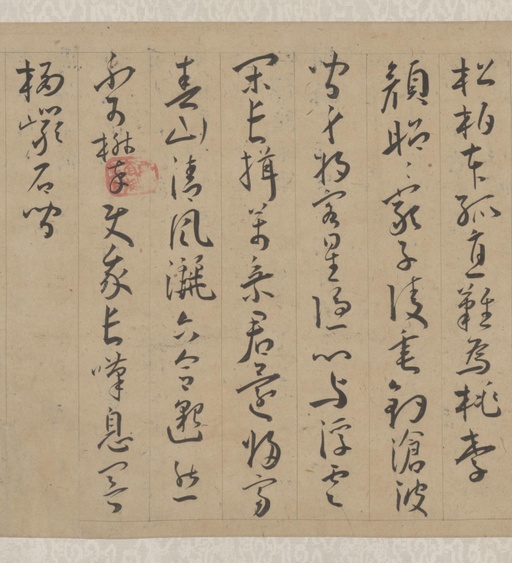 松柏本孤直難為桃李
顏昭〻嚴子陵垂釣滄波
間身將客星隱心與浮雲
閑長揖萬乘君還歸富
春山清風灑六合邈然
不可攀使我長嘆息冥
棲巖石間